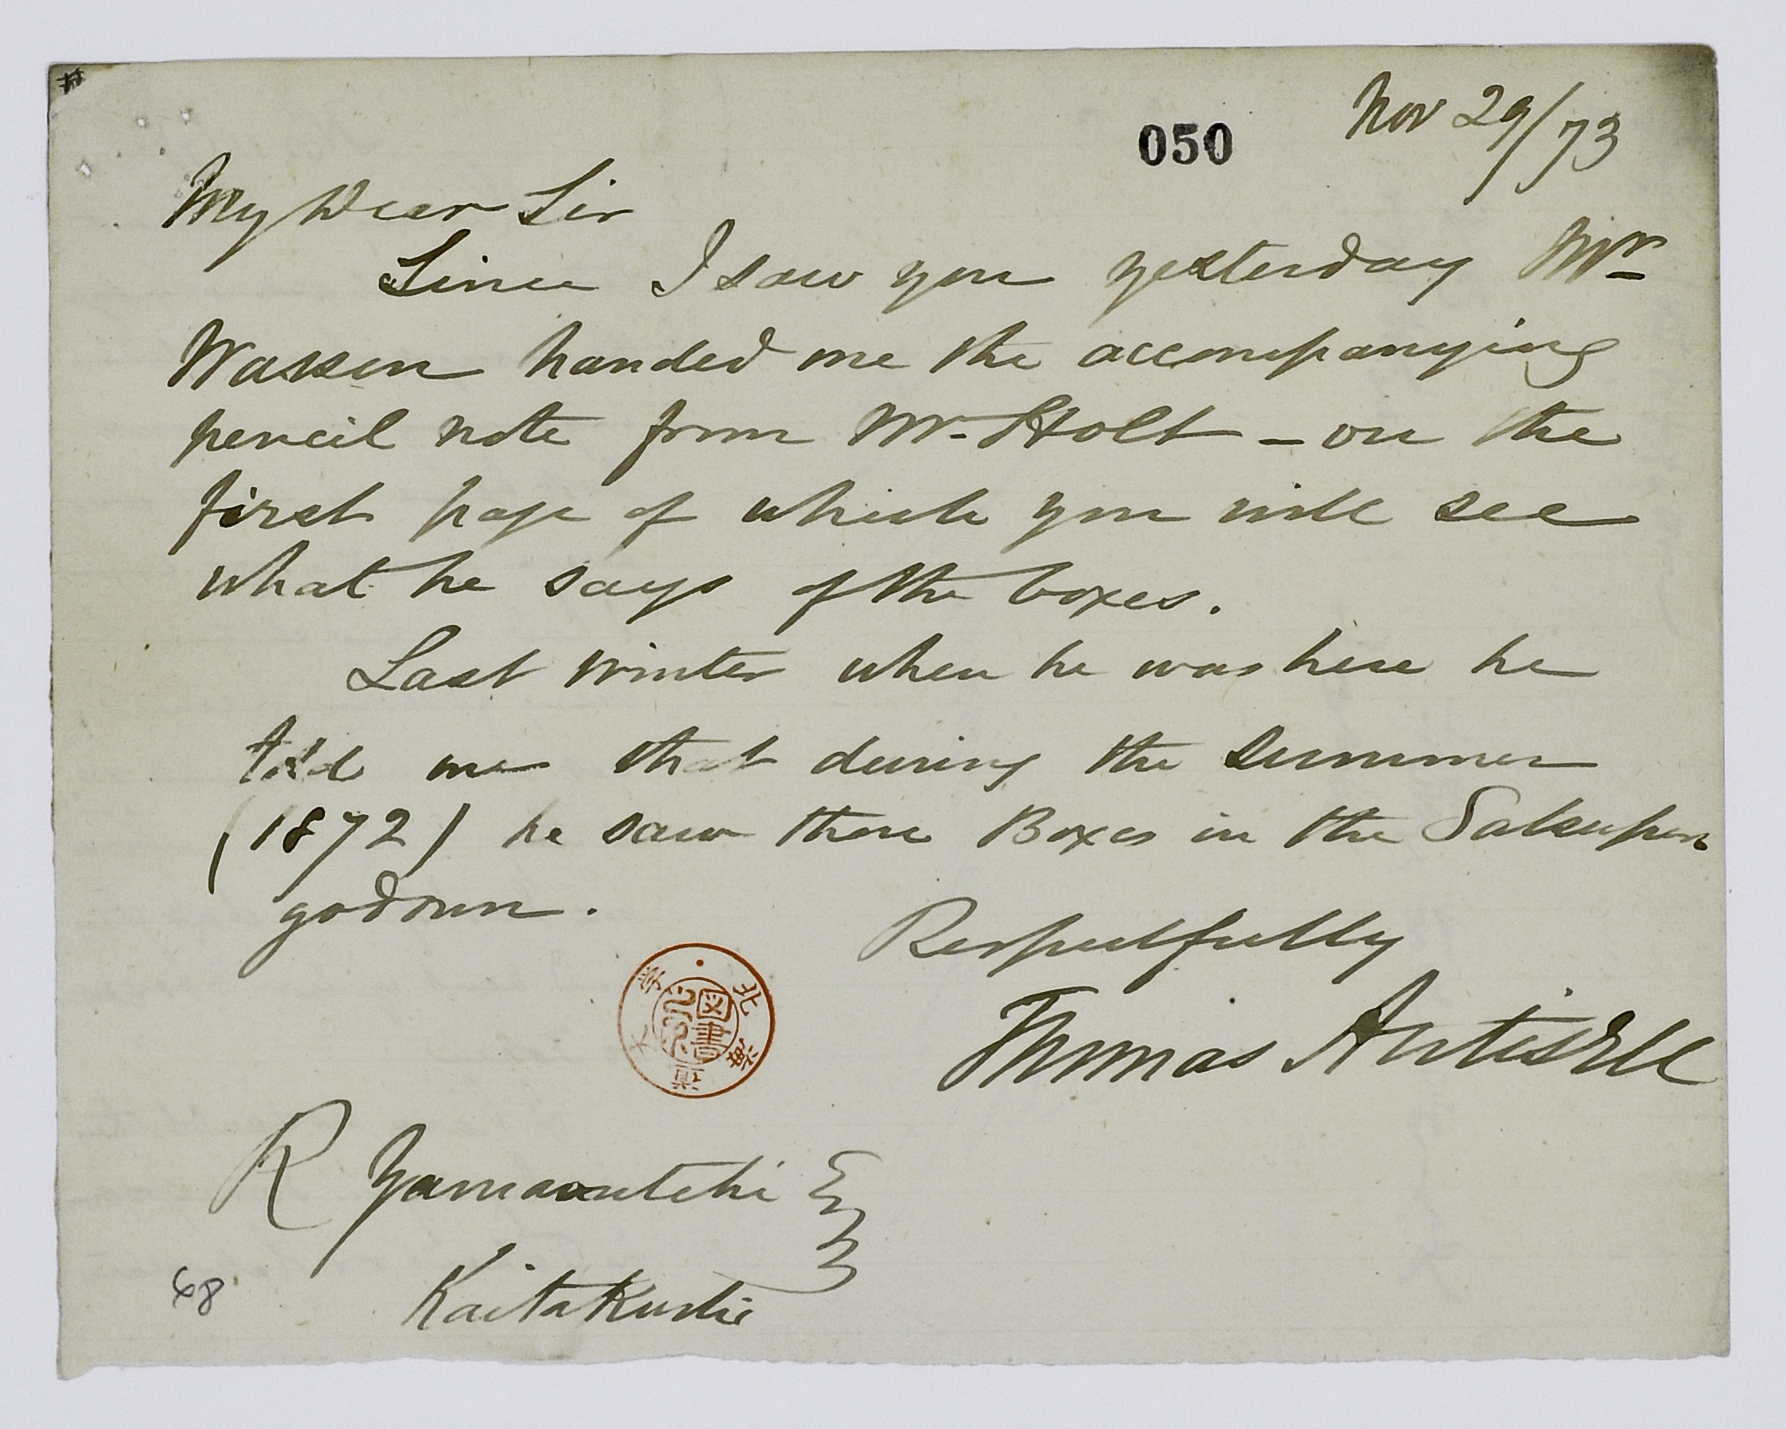 050
Nov 29/73
My Dear Sir
Since I saw you yesterday Mr
Wasson handed me the accompanying
pencil note from Mr. Holt – on the
first page of which you will see
what he says of the boxes.
Last winter when he was here he
told me that during the summer
(1872) he saw them Boxes in the
godown.
Respectfully
Thomas Antisell
北海道大学
図書之印
R Yamaoutchi Esq
Kaitakushi
68